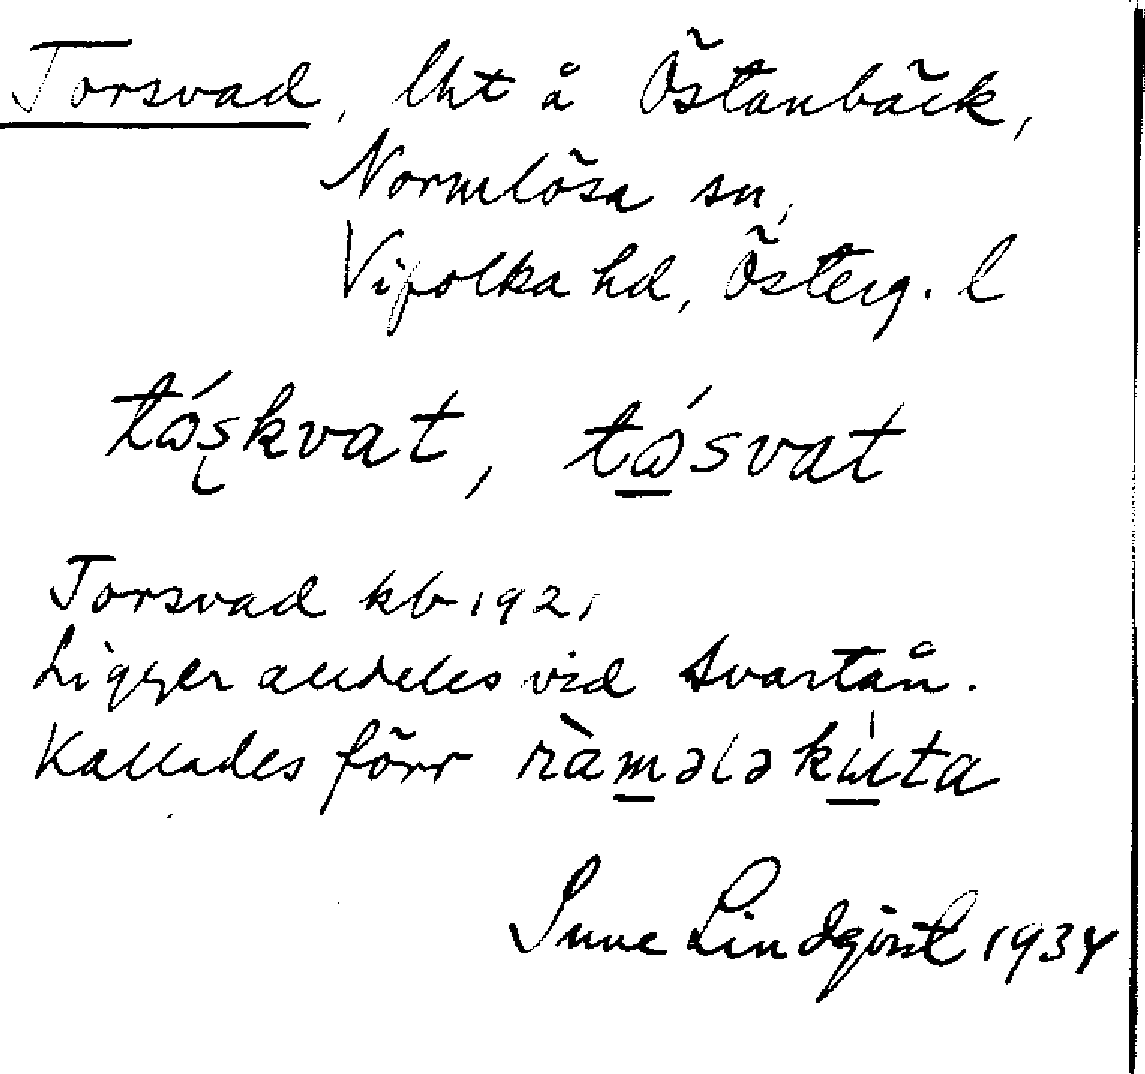 Torsvad, lht å Östanbäck,
Normlösa sn,
Vifolka hd, Österg. l
tɷ́s̨kvat, tɷ́svat
Torsvad kb 1921
Ligger alldeles vid Svartån.
Kallades förr ràmələkùta
Sune Lindqvist 1934